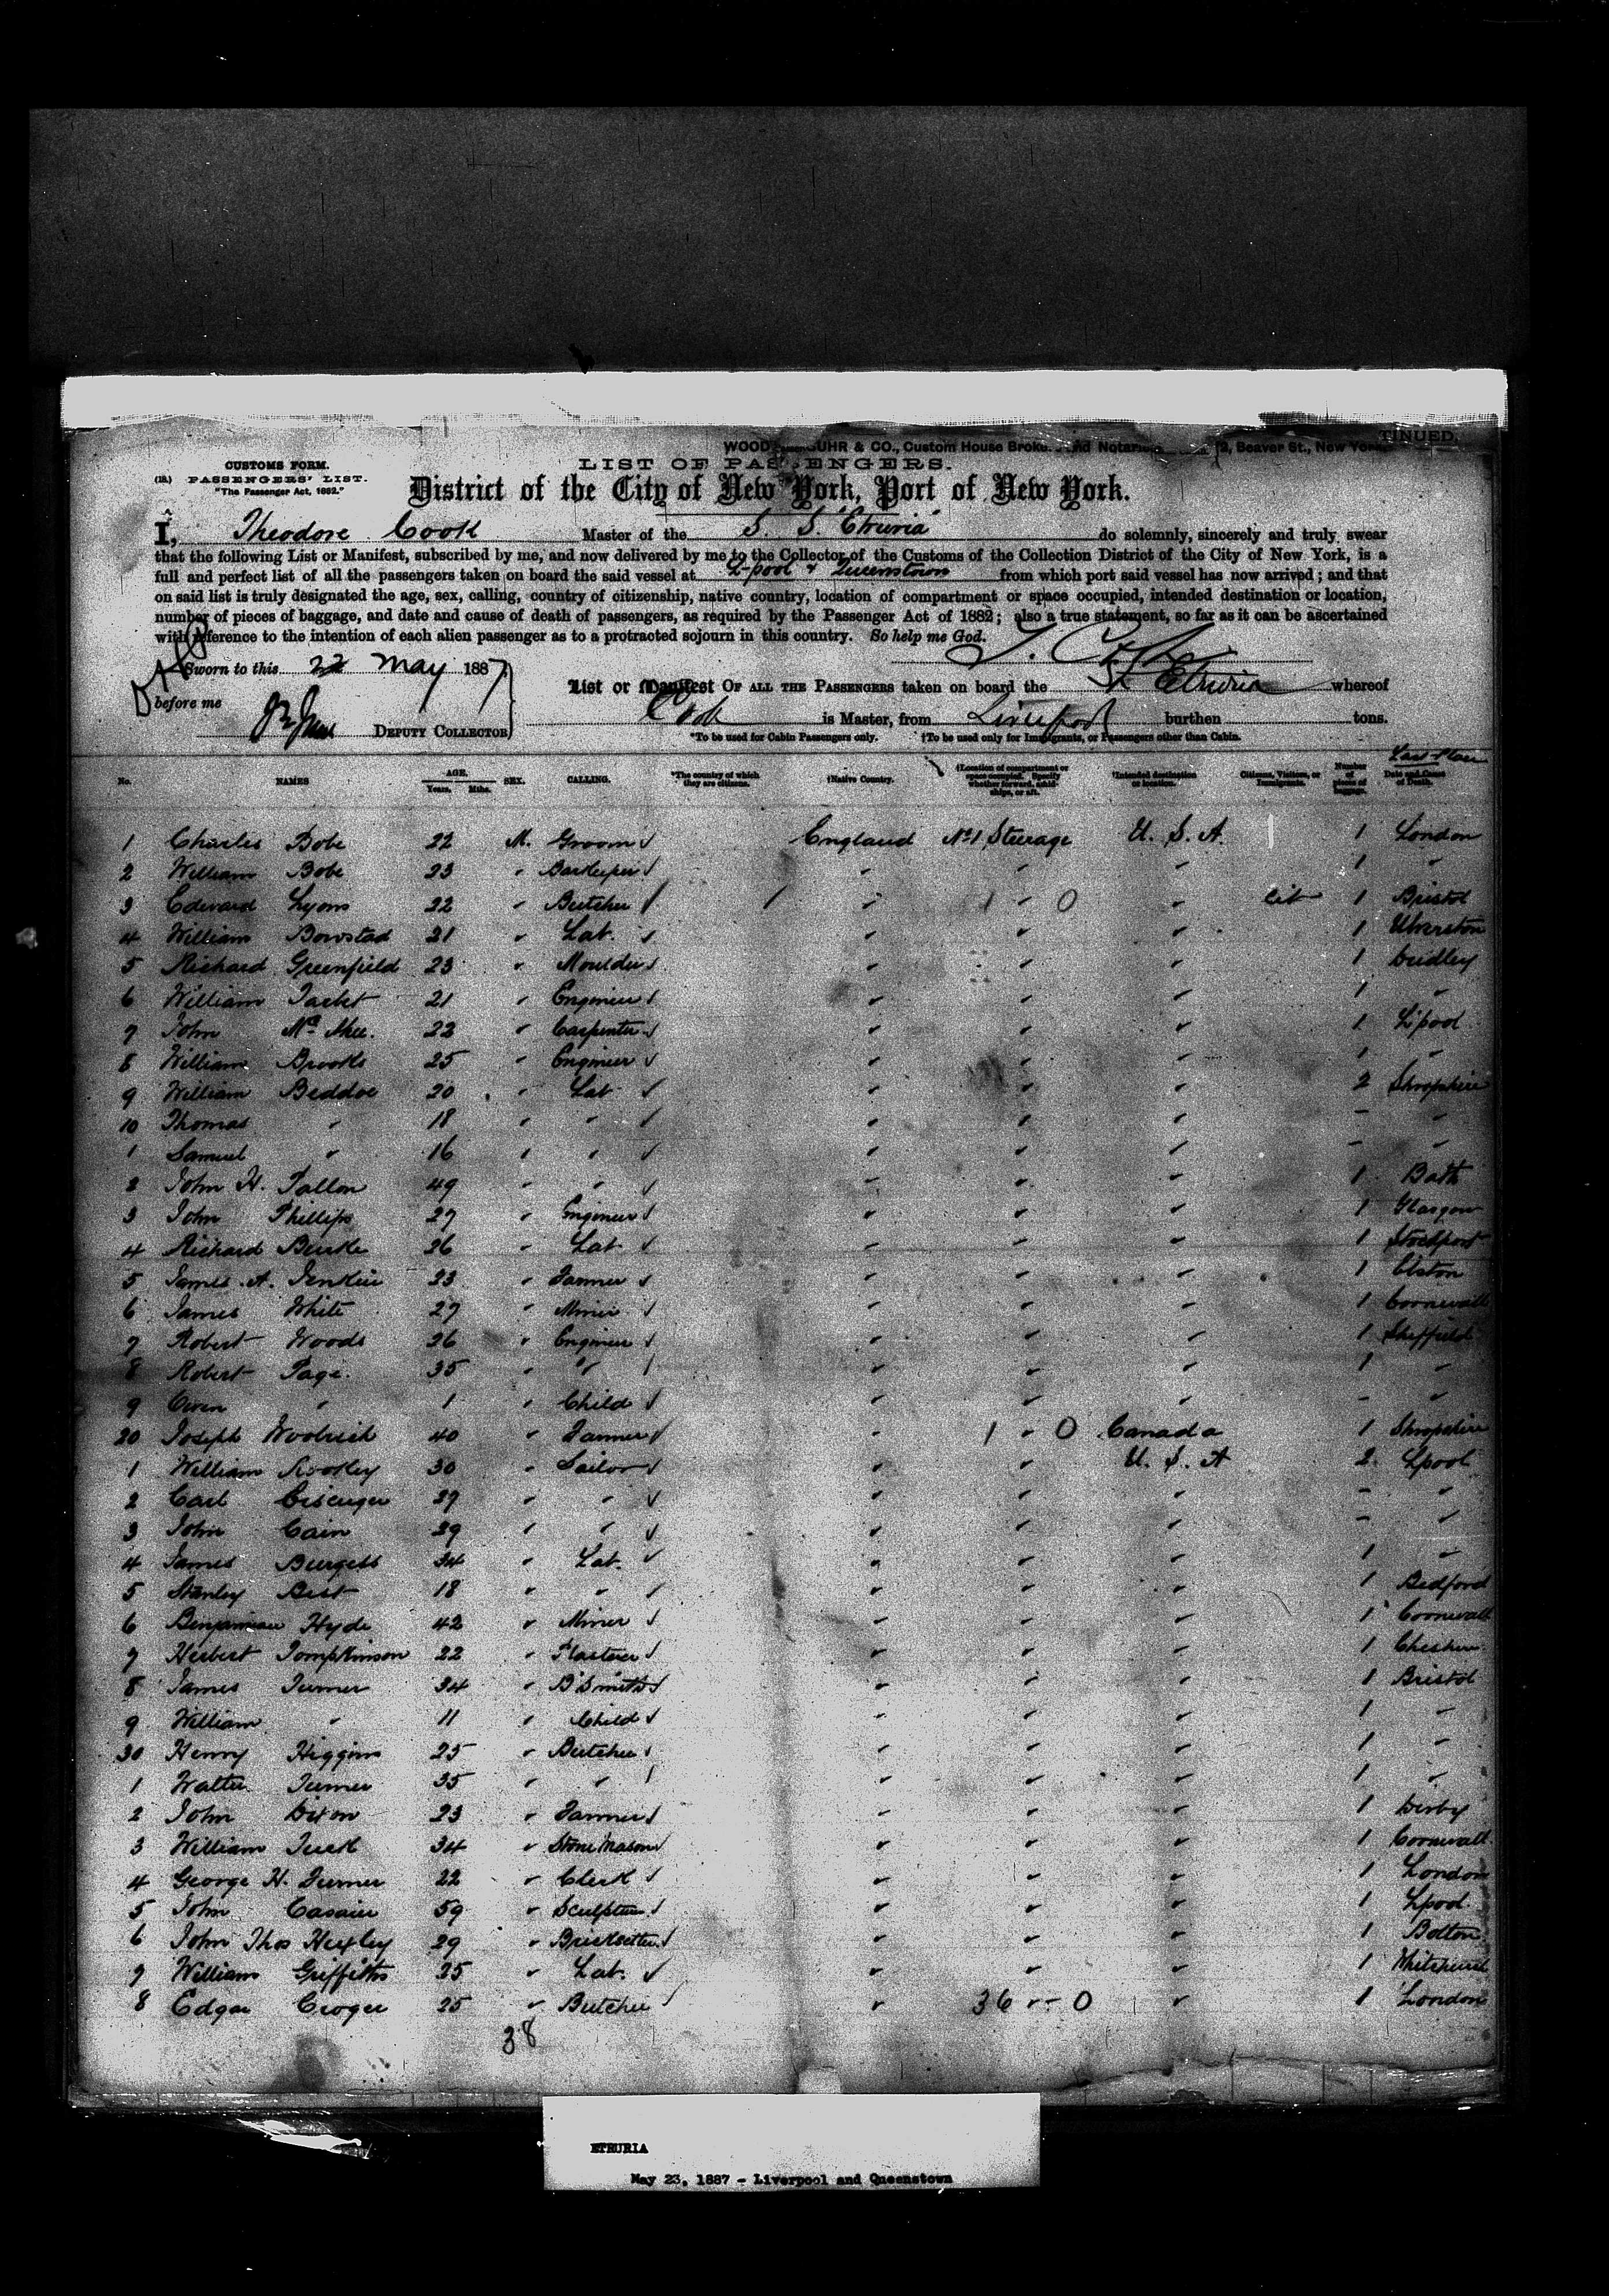 TINUED.
WOOD UHR & CO., Custom House Broke Notar 2, Beaver St., New York
CUSTOMS FORM.
LIST OF PASSENGERS.
(18.) PASSENGERS' LIST.
"The Passenger Act, 1882."
District of the City of New York, Port of New York.
I, Theodore Cook Master of the S. S. "Etruria" do solemnly, sincerely and truly swear
that the following List or Manifest, subscribed by me, and now delivered by me to the Collector of the Customs of the Collection District of the City of New York, is a
full and perfect list of all the passengers taken on board the said vessel at L-pool & Queenstown from which port said vessel has now arrived; and that
on said list is truly designated the age, sex, calling, country of citizenship, native country, location of compartment or space occupied, intended destination or location,
number of pieces of baggage, and date and cause of death of passengers, as required by the Passenger Act of 1882; also a true statement, so far as it can be ascertained
with reference to the intention of each alien passenger as to a protracted sojourn in this country. So help me God.
Sworn to this 22 May 1887
List or Manifest OF ALL THE PASSENGERS taken on board the Etruria whereof
before me
DEPUTY COLLECTOR
Cook is Master, from Liverpool burthen tons.
*To be used for Cabin Passengers only. †To be used only for Immigrants, or Passengers other than Cabin.
Last Place
No. NAMES AGE. Years. Mths. SEX. CALLING. *The country of which they are citizens. †Native Country. †Location of compartment or space occupied. Specify whether forward, amidships, or aft. *Intended destination or location. Citizens, Visitors, or Immigrants. Number of pieces of baggage. Date and Cause of Death.
1 Charles Bobe 22 M. Groom England No 1 Steerage U. S. A. 1 London
2 William Bobe 23 " Barkeeper " " " 1 "
3 Edward Lyons 22 " Butcher " 1 " 0 " cit 1 Bristol
4 William Bowstad 21 " Lab. " " " 1 Ulverston
5 Richard Greenfield 23 " Moulder " " " 1 Dudley
6 William 21 " Engineer " " " 1 "
7 John 22 " Carpenter " " " 1 L'pool
8 William Brooks 25 " Engineer " " " 1 "
9 William Beddoe 20 " Lab " " " 2 Shropshire
10 Thomas " 18 " " " " " – "
1 Samuel " 16 " " " " " – "
2 John H. Fallon 49 " " " " " 1 Bath
3 John Phillips 27 " Engineer " " " 1 Glasgow
4 Richard Burke 26 " Lab " " " 1 Stockport
5 James A. Jenkin 23 " Farmer " " " 1
6 James White 27 " Miner " " " 1 Cornwall
7 Robert Woods 26 " Engineer " " " 1 Sheffield
8 Robert Page 35 " " " " " 1 "
9 Owen " 1 " Child " " " – "
20 Joseph Woolrich 40 " Farmer " 1 " 0 Canada 1 Shropshire
1 William 30 " Sailor " " U. S. A 2 Lpool
2 Carl 27 " " " " " – "
3 John Cain 29 " " " " " – "
4 James Burgess 34 " Lab. " " " 1 "
5 Stanley Best 18 " " " " " 1 Bedford
6 Benjamin Hyde 42 " Miner " " " 1 Cornwall
7 Herbert Tompkinson 22 " Plasterer " " " 1 Cheshire
8 James Turner 34 " B'Smith " " " 1 Bristol
9 William " 11 " Child " " " 1 "
30 Henry Higgins 25 " Butcher " " " 1 "
1 Walter Turner 35 " " " " " 1 "
2 John Dixon 23 " Farmer " " " 1 Derby
3 William Tuck 34 " Stone Mason " " " 1 Cornwall
4 George H. Turner 22 " Clerk " " " 1 London
5 John 59 " Sculptor " " " 1 Lpool
6 John Thos Huxley 29 " Bricksetter " " " 1 Bolton
7 William Griffiths 25 " Lab. " " " 1 Whitchurch
8 Edgar 25 " Butcher " 36 " – 0 " 1 London
38
ETRURIA
May 23, 1887 - Liverpool and Queenstown